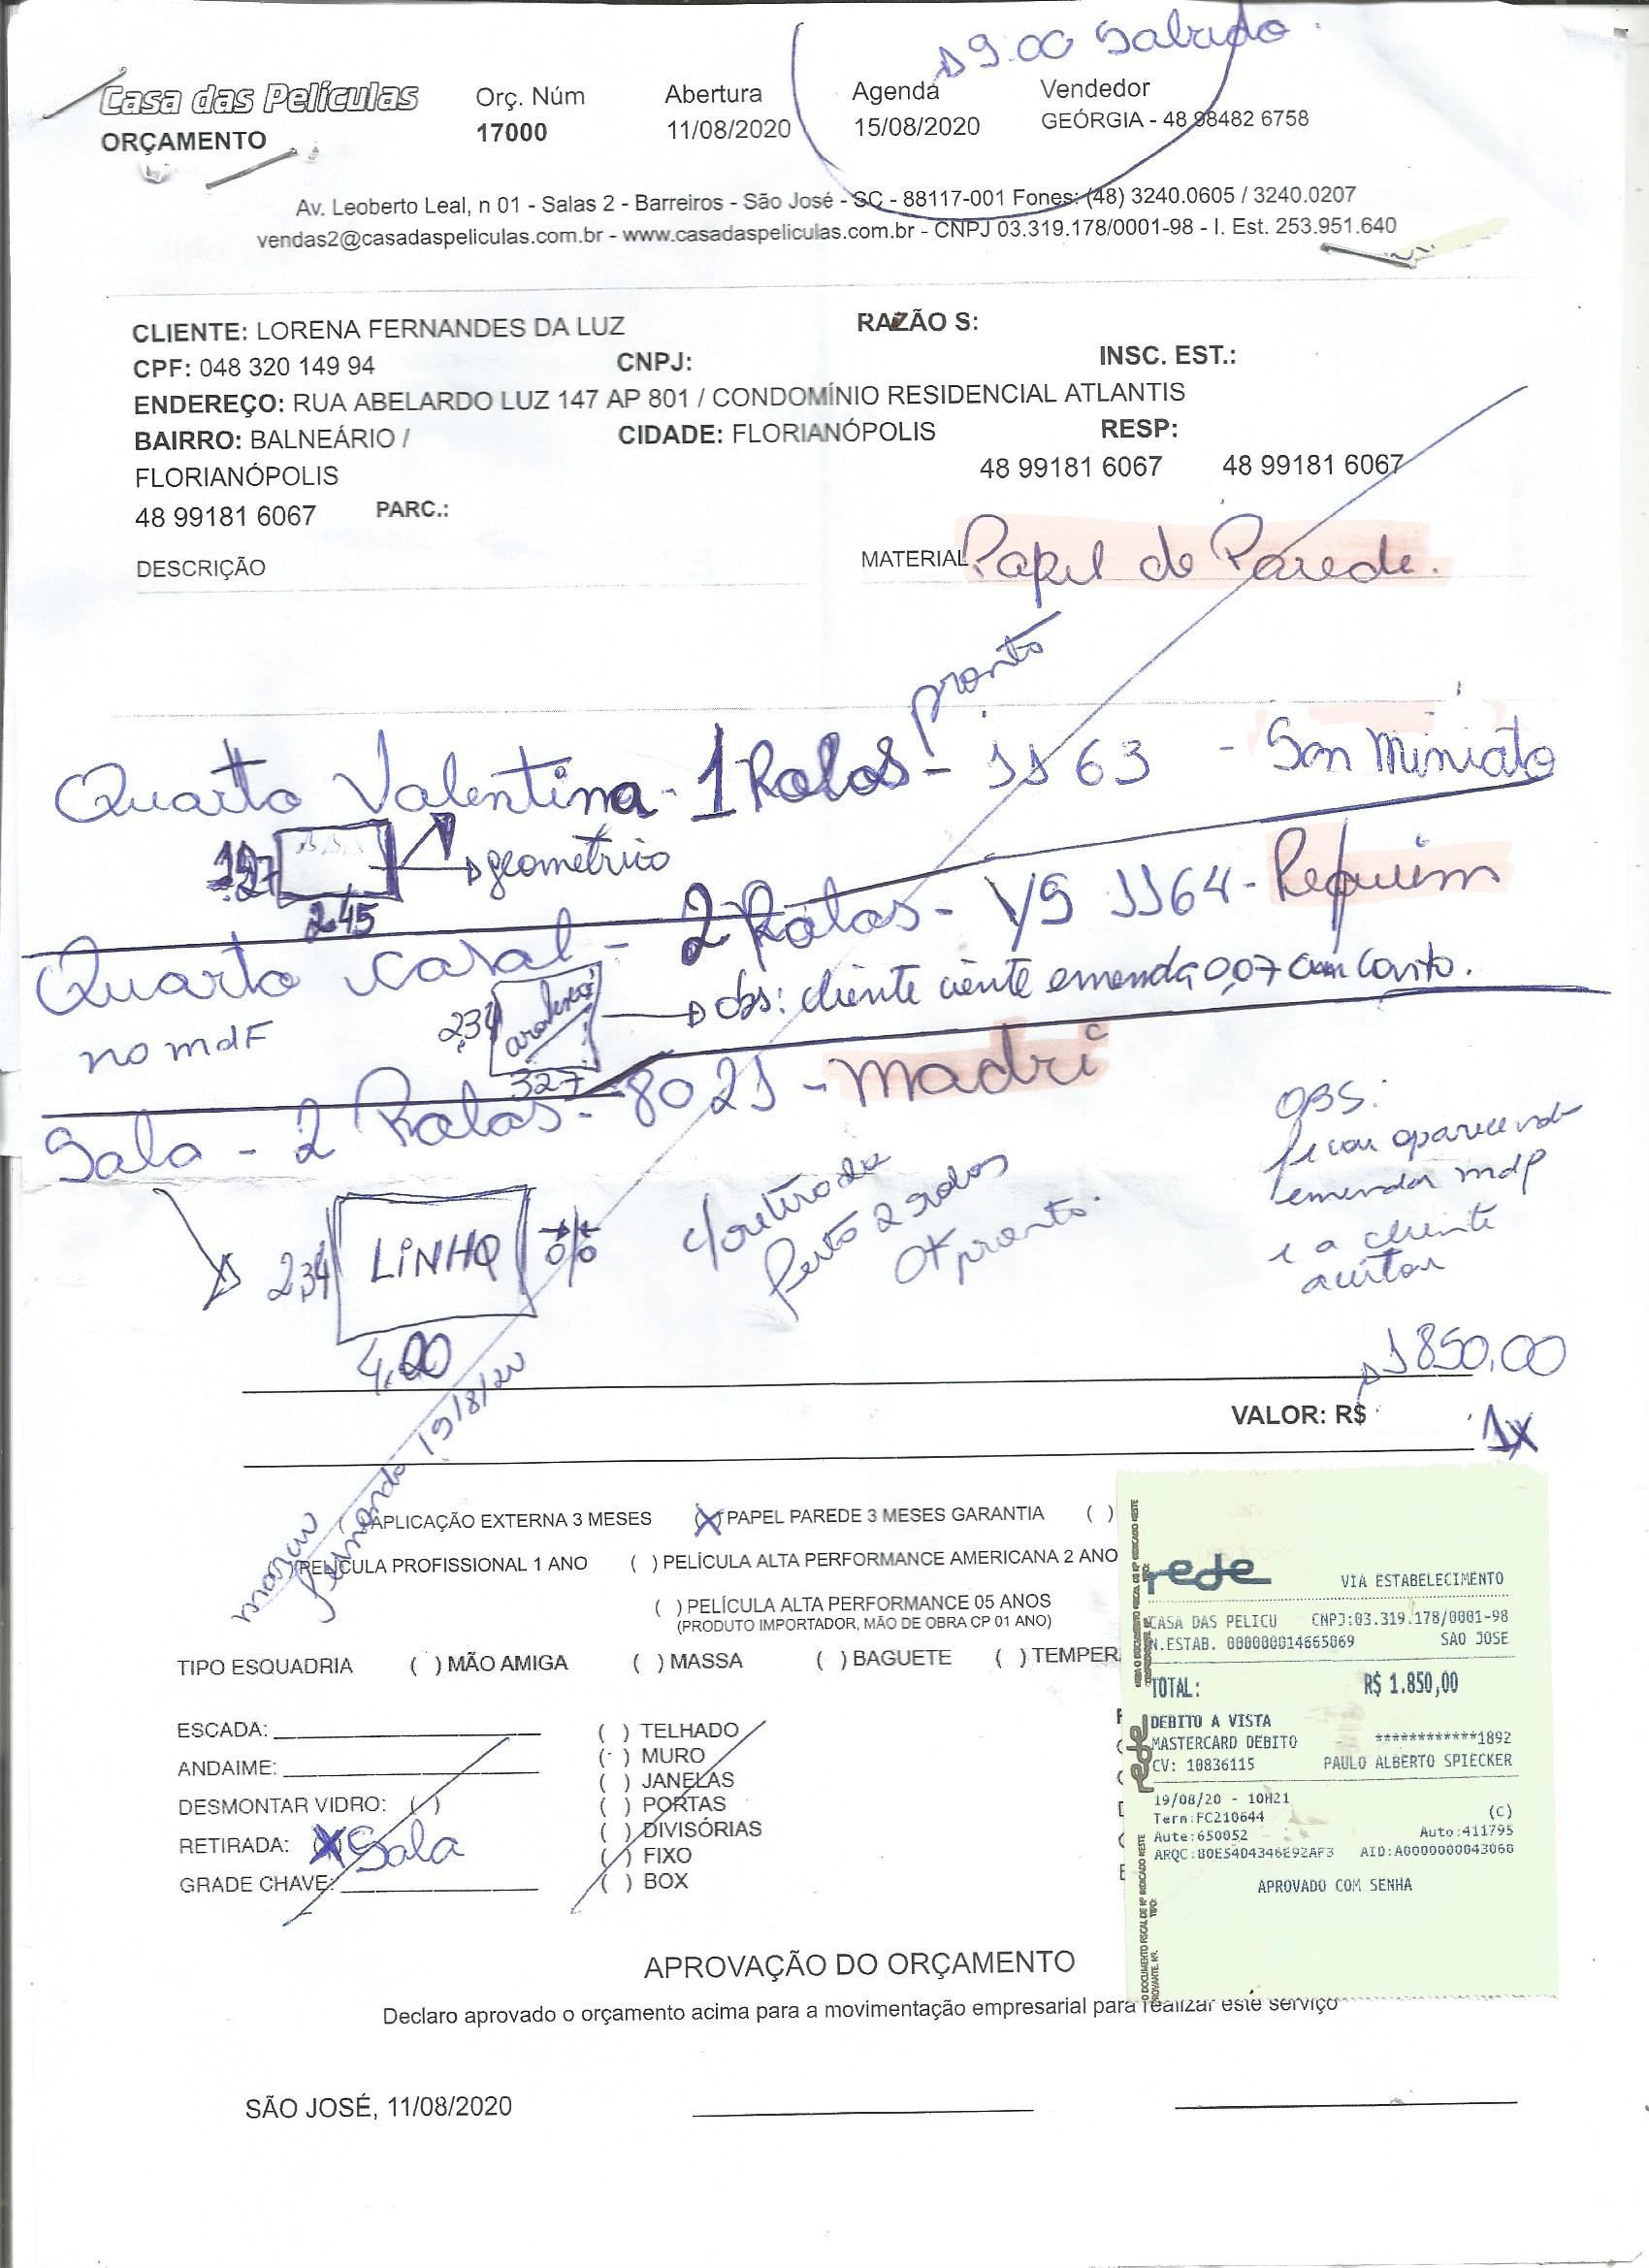 → 9:00 Sabado.
Casa das Películas
ORÇAMENTO
Orç. Núm
17000
Abertura
11/08/2020
Agenda
15/08/2020
Vendedor
GEÓRGIA - 48 98482 6758
Av. Leoberto Leal, n 01 - Salas 2 - Barreiros - São José - SC - 88117-001 Fones: (48) 3240.0605 / 3240.0207
vendas2@casadaspeliculas.com.br - www.casadaspeliculas.com.br - CNPJ 03.319.178/0001-98 - I. Est. 253.951.640
CLIENTE: LORENA FERNANDES DA LUZ RAZÃO S:
CPF: 048 320 149 94 CNPJ: INSC. EST.:
ENDEREÇO: RUA ABELARDO LUZ 147 AP 801 / CONDOMÍNIO RESIDENCIAL ATLANTIS
BAIRRO: BALNEÁRIO / CIDADE: FLORIANÓPOLIS RESP:
FLORIANÓPOLIS 48 99181 6067 48 99181 6067
48 99181 6067 PARC.:
DESCRIÇÃO MATERIAL Papel de Parede.
pronto
Quarto Valentina - 1 Rolos - 1163 - San Miniato
2.45 → geometrico
Quarto casal - 2 Rolos - YS 1164 - Requiem
no mdF 234 327 → obs: cliente ciente emenda 0,07 com Canto.
Sala - 2 Rolos - 8021 - Madri
OBS:
ficou aparecendo
emendar mdf
e a cliente
aceitou
234 LINHO
4.20
c/ retirada
feito 2 rolos
Ok pronto.
→ 1850,00
VALOR: R$
1x
Fernando 19/8/20
( ) APLICAÇÃO EXTERNA 3 MESES (X) PAPEL PAREDE 3 MESES GARANTIA ( )
( ) PELÍCULA PROFISSIONAL 1 ANO ( ) PELÍCULA ALTA PERFORMANCE AMERICANA 2 ANO
( ) PELÍCULA ALTA PERFORMANCE 05 ANOS
(PRODUTO IMPORTADOR, MÃO DE OBRA CP 01 ANO)
TIPO ESQUADRIA ( ) MÃO AMIGA ( ) MASSA ( ) BAGUETE ( ) TEMPER
ESCADA: ( ) TELHADO
ANDAIME: ( ) MURO
( ) JANELAS
DESMONTAR VIDRO: ( ) ( ) PORTAS
RETIRADA: (X) Sala ( ) DIVISÓRIAS
( ) FIXO
GRADE CHAVE: ( ) BOX
rede
VIA ESTABELECIMENTO
CASA DAS PELICU CNPJ:03.319.178/0001-98
N.ESTAB. 000000014665069 SAO JOSE
TOTAL: R$ 1.850,00
DEBITO A VISTA
MASTERCARD DEBITO ************1892
CV: 10836115 PAULO ALBERTO SPIECKER
19/08/20 - 10H21
Term:FC210644 (C)
Aute:650052 Auto:411795
ARQC:80E54D4346E92AF3 AID:A0000000043060
APROVADO COM SENHA
rede
APROVAÇÃO DO ORÇAMENTO
Declaro aprovado o orçamento acima para a movimentação empresarial para realizar este serviço
SÃO JOSÉ, 11/08/2020